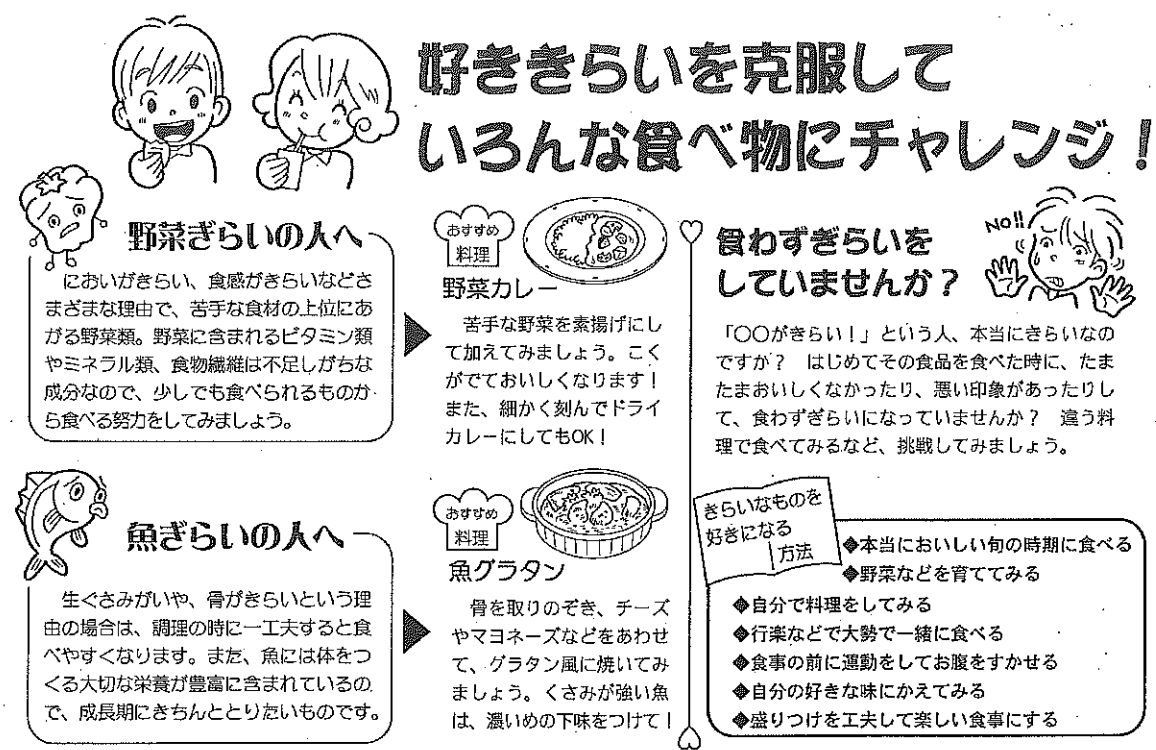 好ききらいを克服して
いろんな食べ物にチャレンジ！
野菜ぎらいの人へ
においがきらい、食感がきらいなどさ
まざまな理由で、苦手な食材の上位にあ
がる野菜類。野菜に含まれるビタミン類
やミネラル類、食物繊維は不足しがちな
成分なので、少しでも食べられるものか
ら食べる努力をしてみましょう。
おすすめ
料理
野菜カレー
苦手な野菜を素揚げにし
て加えてみましょう。こく
がでておいしくなります！
また、細かく刻んでドライ
カレーにしてもOK！
魚ぎらいの人へ
生ぐさみがいや、骨がきらいという理
由の場合は、調理の時に一工夫すると食
べやすくなります。また、魚には体をつ
くる大切な栄養が豊富に含まれているの
で、成長期にきちんととりたいものです。
おすすめ
料理
魚グラタン
骨を取りのぞき、チーズ
やマヨネーズなどをあわせ
て、グラタン風に焼いてみ
ましょう。くさみが強い魚
は、濃いめの下味をつけて！
食わずぎらいを
していませんか？
NO!!
「〇〇がきらい！」という人、本当にきらいなの
ですか？　はじめてその食品を食べた時に、たま
たまおいしくなかったり、悪い印象があったりし
て、食わずぎらいになっていませんか？　違う料
理で食べてみるなど、挑戦してみましょう。
きらいなものを
好きになる
方法
◆本当においしい旬の時期に食べる
◆野菜などを育ててみる
◆自分で料理をしてみる
◆行楽などで大勢で一緒に食べる
◆食事の前に運動をしてお腹をすかせる
◆自分の好きな味にかえてみる
◆盛りつけを工夫して楽しい食事にする